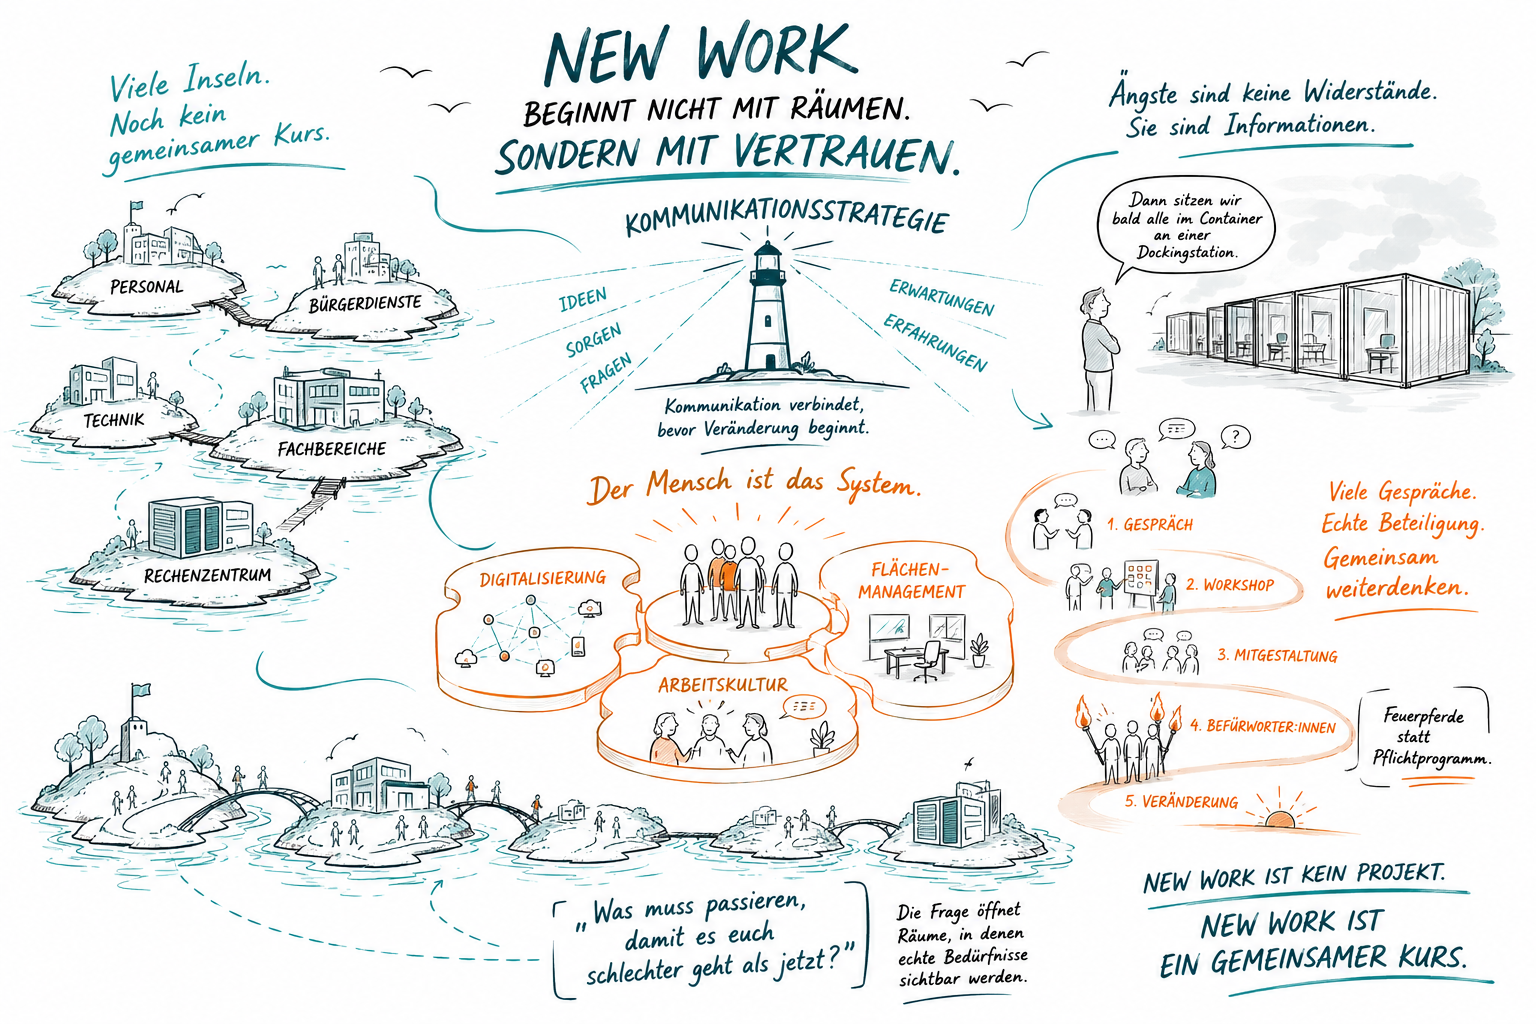 NEW WORK
BEGINNT NICHT MIT RÄUMEN.
SONDERN MIT VERTRAUEN.
Viele Inseln.
Noch kein
gemeinsamer Kurs.
PERSONAL
BÜRGERDIENSTE
TECHNIK
FACHBEREICHE
RECHENZENTRUM
KOMMUNIKATIONSSTRATEGIE
IDEEN
SORGEN
FRAGEN
ERWARTUNGEN
ERFAHRUNGEN
Kommunikation verbindet,
bevor Veränderung beginnt.
Ängste sind keine Widerstände.
Sie sind Informationen.
Dann sitzen wir
bald alle im Container
an einer
Dockingstation.
?
Der Mensch ist das System.
DIGITALISIERUNG
FLÄCHEN-
MANAGEMENT
ARBEITSKULTUR
1. GESPRÄCH
2. WORKSHOP
3. MITGESTALTUNG
4. BEFÜRWORTER:INNEN
5. VERÄNDERUNG
Viele Gespräche.
Echte Beteiligung.
Gemeinsam
weiterdenken.
Feuerpferde
statt
Pflichtprogramm.
„Was muss passieren,
damit es euch
schlechter geht als jetzt?”
Die Frage öffnet
Räume, in denen
echte Bedürfnisse
sichtbar werden.
NEW WORK IST KEIN PROJEKT.
NEW WORK IST
EIN GEMEINSAMER KURS.